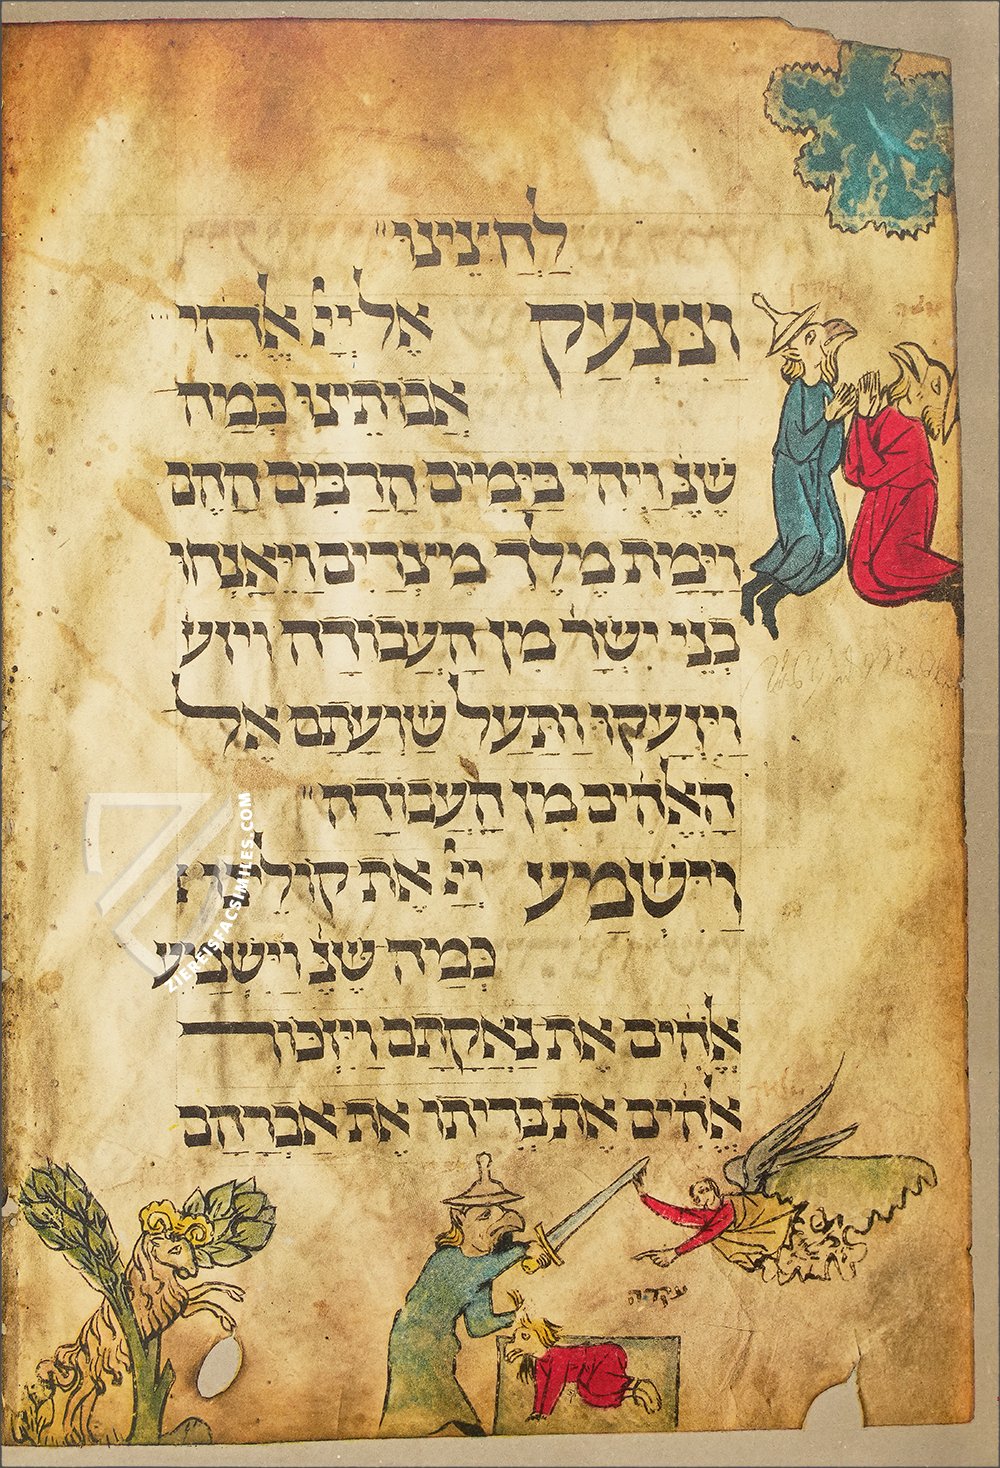 לחצינו"
ונצעק אל ייי אלהי
אבותינו כמה
שנ ויהי בימים הרבים ההם
וימת מלך מצרים ויאנחו
בני ישר מן העבודה ויזע
ויזעקו ותעל שועתם אל
האלהים מן העבודה"
וישמע ייי את קולינו
כמה שנ וישמע
אלהים את נאקתם ויזכור
אלהים את בריתו את אברהם
עקדה
ZIEREISFACSIMILES.COM